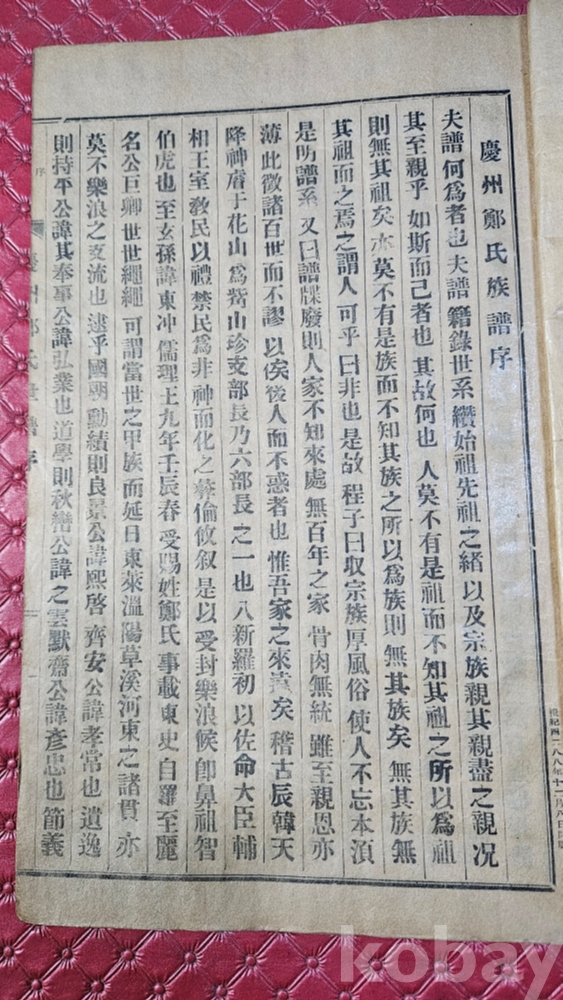 慶州鄭氏族譜序
夫譜何爲者也夫譜籍錄世系纘始祖先祖之緖以及宗族親其親盡之親况
其至親乎如斯而已者也其故何也人莫不有是祖而不知其祖之所以爲祖
則無其祖矣亦莫不有是族而不知其族之所以爲族則無其族矣無其族無
其祖而之焉之謂人可乎曰非也是故程子曰収宗族厚風俗使人不忘本湏
是明譜系又曰譜牒廢則人家不知來處無百年之家骨肉無統雖至親恩亦
薄此徵諸百世而不謬以俟後人而不惑者也惟吾家之來遠矣稽古辰韓天
降神膺于花山爲觜山珍支部長乃六部長之一也八新羅初以佐命大臣輔
相王室敎民以禮禁民爲非神而化之彛倫攸叙是以受封樂浪候卽鼻祖智
伯虎也至玄孫諱東冲儒理王九年壬辰春受賜姓鄭氏事載東史自羅至麗
名公巨卿世世繩繩可謂當世之甲族而延日東萊溫陽草溪河東之諸貫亦
莫不樂浪之支流也逮乎國朝勳績則良景公諱熙啓齊安公諱孝常也遺逸
則持平公諱其奉事公諱弘業也道學則秋巒公諱之雲默齋公諱彥忠也節義
慶州鄭氏世譜序
序
kobay